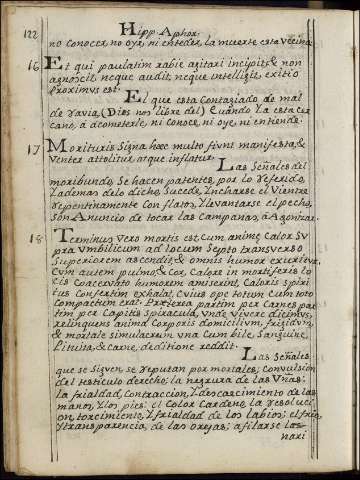 122 Hipp. Aphor.
no conocer, no oyr, ni entẽder, la muerte esta vecina
16 Et qui paulatim rabie agitari incipit, & non
agnoscit, neque audit, neque intelligit, exitio
proximus est.
El que esta Contagiado de mal
de raviâ, (Dios nos libre del) Quando la esta cer
cano, â acometerle, ni Conoce, ni oye, ni entiende
17 Morituris Signa hæc multo fiunt manifesta, &
Venter attolitur, atque inflatur.
Las Señales del
moribundo, Se hacen patentes, por lo referido,
Y ademas delo dicho, Sucede, Yncharse el Vientre
repentinamente Con flatos, Y levantarse el pecho,
Son Anuncio de tocar las campanas, â Agonizar.
18 Terminus vero mortis est, Cum animæ Calor Su
pra Vmbilicum ad locum Septo transverso
Superiorem ascendit, & omnis humor exuritur,
Cum autem pulmo, & Cor, Calore in mortiferis lo
cis Coacervato humorem amiserint, Caloris Spiri
tus Confertim exhalat, Cuius ope totum Cum toto
Compactum erat. Præterea partim per Carnes par
tim per Capitis Spiracula, unde vivere dicimur,
relinquens anima Corporis domicilium, frigidum,
& mortale simulacrum una Cum bile, Sanguine,
Pituita, & Carne, deditione reddit.
Las Señales,
que se Siguen, se reputan por mortales; Convulsion
del testiculo derecho; la negrura de las Vñas;
la frialdad, Contraccion, Y descaecimiento de las
manos, Y los pies; el Color Cardeno, la resoluci
on, torcimiento, Y frialdad de los labios; el frio,
Y transparencia, de las orejas; afilarse las
nari